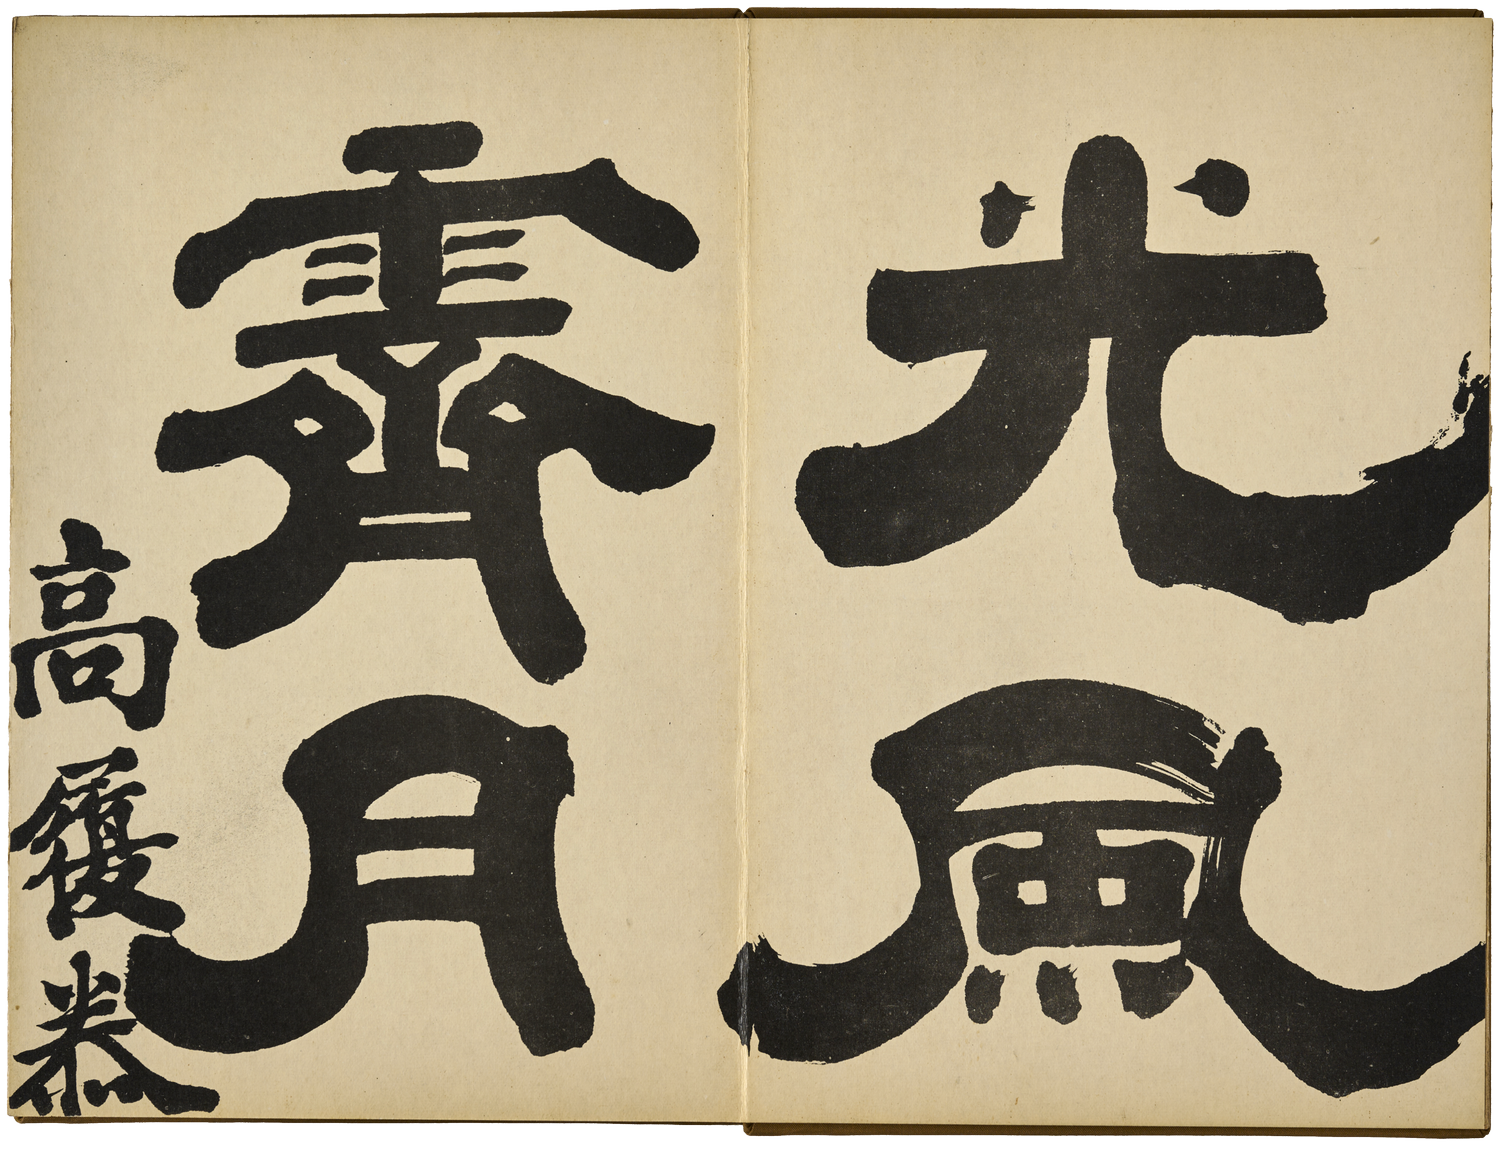 光風
霽月
高履泰